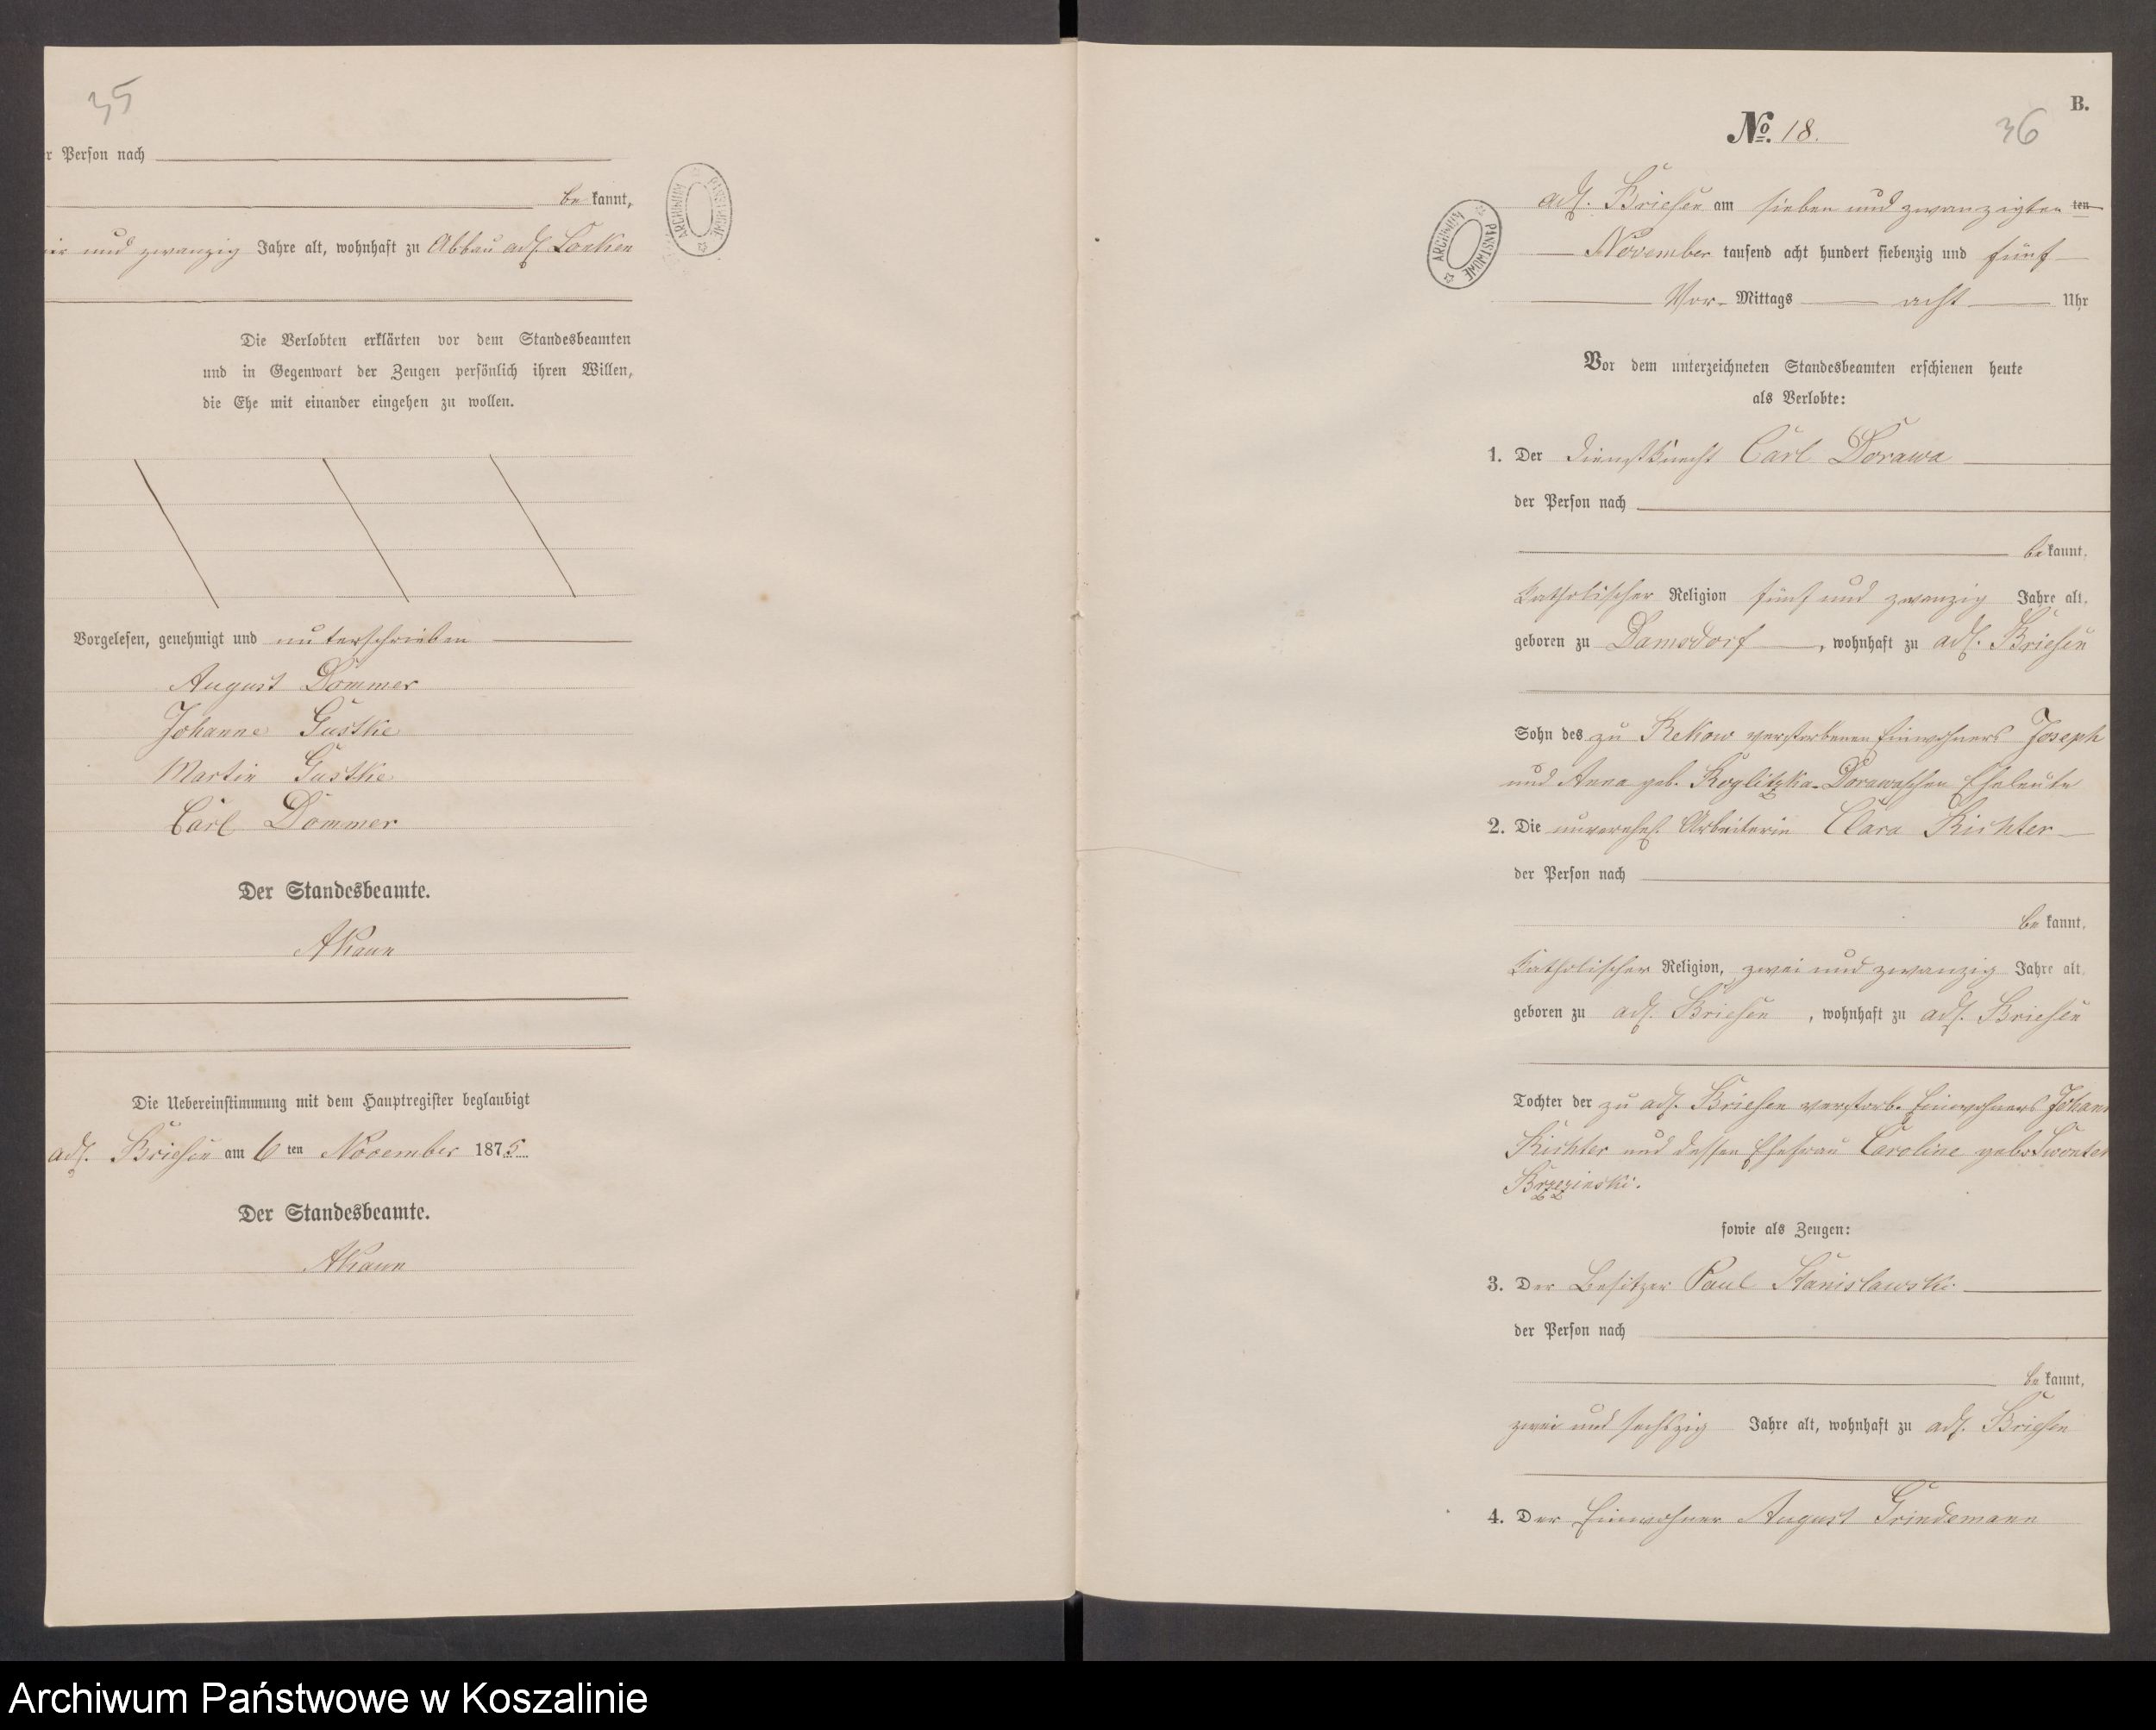 35
r Person nach
be kannt,
und zwanzig Jahre alt, wohnhaft zu Abbau adl. Lonken
Die Verlobten erklärten vor dem Standesbeamten
und in Gegenwart der Zeugen persönlich ihren Willen,
die Ehe mit einander eingehen zu wollen.
Vorgelesen, genehmigt und unterschrieben
August Dommer
Johanne Gustke
Martin Gustke
Carl Dommer
Der Standesbeamte.
Die Uebereinstimmung mit dem Hauptregister beglaubigt
adl. Briesen am 6 ten November 1875
Der Standesbeamte.
ARCHIWUM PAŃSTWOWE
B.
No. 18.
36
ARCHIWUM PAŃSTWOWE
adl. Briesen am sieben und zwanzigten ten
November tausend acht hundert siebenzig und fünf
Vor- Mittags acht Uhr
Vor dem unterzeichneten Standesbeamten erschienen heute
als Verlobte:
1. Der Dienstknecht Carl Dorawa
der Person nach
be kannt,
katholischer Religion fünf und zwanzig Jahre alt,
geboren zu Damsdorf, wohnhaft zu adl. Briesen
Sohn des zu Rekow verstorbenen Einwohners Joseph
und Anna geb. Roglitzka-Dorawaschen Eheleute
2. Die unverehel. Arbeiterin Clara Richter
der Person nach
be kannt,
katholischer Religion, zwei und zwanzig Jahre alt,
geboren zu adl. Briesen, wohnhaft zu adl. Briesen
Tochter der zu adl. Briesen verstorb. Einwohners Johann
Richter und dessen Ehefrau Caroline geb.
Brzezinski.
sowie als Zeugen:
3. Der Besitzer Paul Stanislawski
der Person nach
be kannt,
zwei und sechszig Jahre alt, wohnhaft zu adl. Briesen
4. Der Einwohner August Grindemann
Archiwum Państwowe w Koszalinie